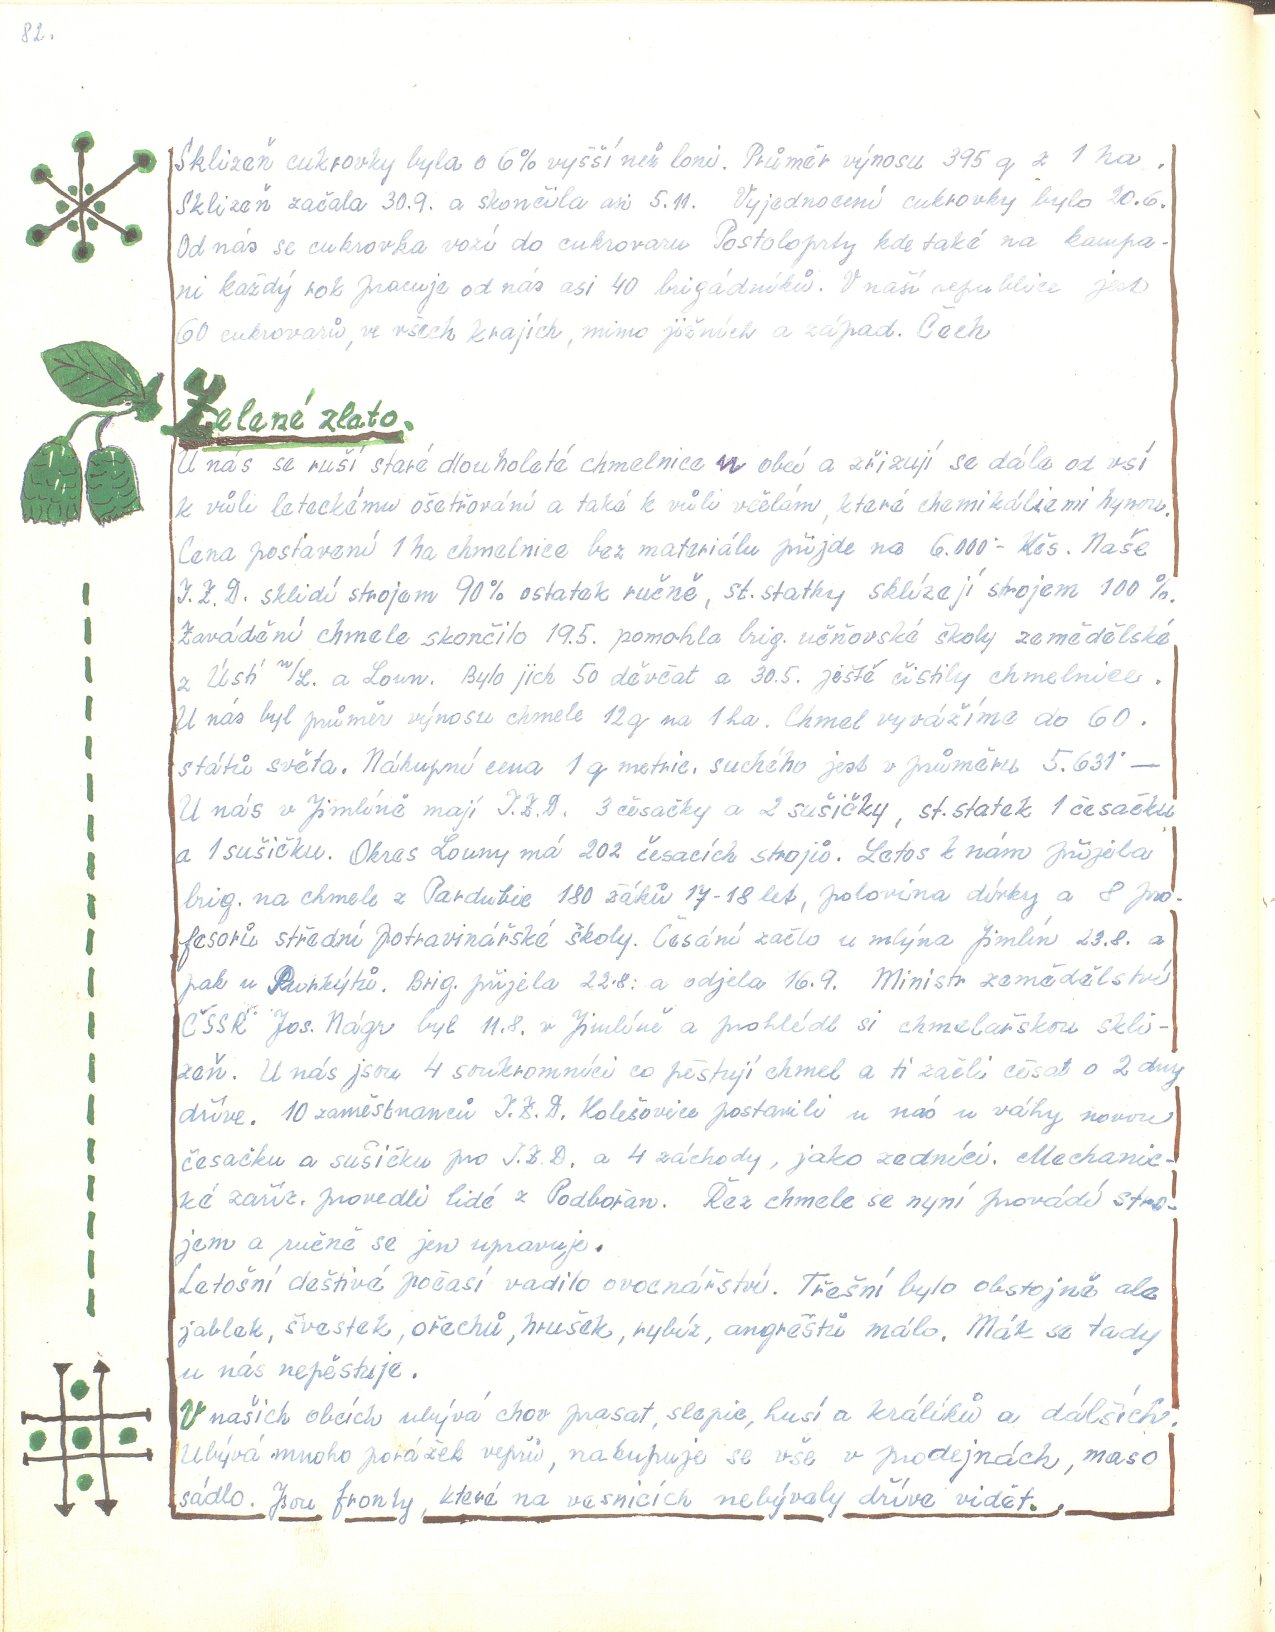 82.
Sklizeň cukrovky byla o 6% vyšší než loni. Průměr výnosu 395 q z 1 ha.
Sklizeň začala 30.9. a skončila až 5.11. Vyjednocení cukrovky bylo 20.6.
Od nás se cukrovka vozí do cukrovaru Postoloprty kde také na kampa-
ni každý rok pracuje od nás asi 40 brigádníků. V naší republice jest
60 cukrovarů, ve všech krajích, mimo jižních a západ. Čech
Zelené zlato.
U nás se ruší staré dlouholeté chmelnice u obcí a zřizují se dále od vsí
k vůli leteckému ošetřování a také k vůli včelám, které chemikáliemi hynou.
Cena postavení 1 ha chmelnice bez materiálu přijde na 6.000·- Kčs. Naše
J.Z.D. sklidí strojem 90% ostatek ručně, st. statky sklízejí strojem 100%.
Zavádění chmele skončilo 19.5. pomohla brig. učňovské školy zemědělské
z Ústí n/L. a Loun. Bylo jich 50 děvčat a 30.5. ještě čistily chmelnice.
U nás byl průměr výnosu chmele 12q na 1 ha. Chmel vyvážíme do 60.
států světa. Nákupní cena 1 q metric. suchého jest v průměru 5.631·—
U nás v Jimlíně mají J.Z.D. 3 česačky a 2 sušičky, st. statek 1 česačku
a 1 sušičku. Okres Louny má 202 česacích strojů. Letos k nám přijela
brig. na chmele z Pardubic 180 žáků 17-18 let, polovina dívky a 8 pro-
fesorů střední potravinářské školy. Česání začlo u mlýna Jimlín 23.8. a
pak u Purkytů. Brig. přijela 22.8. a odjela 16.9. Ministr zemědělství
ČSSR Jos. Nágr byl 11.8. v Jimlíně a prohlédl si chmelařskou skli-
zeň. U nás jsou 4 soukromníci co pěstují chmel a ti začli česat o 2 dny
dříve. 10 zaměstnanců J.Z.D. Holešovice postavili u nás u váhy novou
česačku a sušičku pro J.Z.D. a 4 záchody, jako zedníci. Mechanic-
ké zaříz. provedli lidé z Podbořan. Řez chmele se nyní provádí stro-
jem a ručně se jen upravuje.
Letošní deštivé počasí vadilo ovocnářství. Třešní bylo obstojně ale
jablek, švestek, ořechů, hrušek, rybíz, angreštů málo. Mák se tady
u nás nepěstuje.
V našich obcích ubývá chov prasat, slepic, husí a králíků a dálších.
Ubývá mnoho porážek vepřů, nakupuje se vše v prodejnách, maso
sádlo. Jsou fronty, které na vesnicích nebývaly dříve vidět.